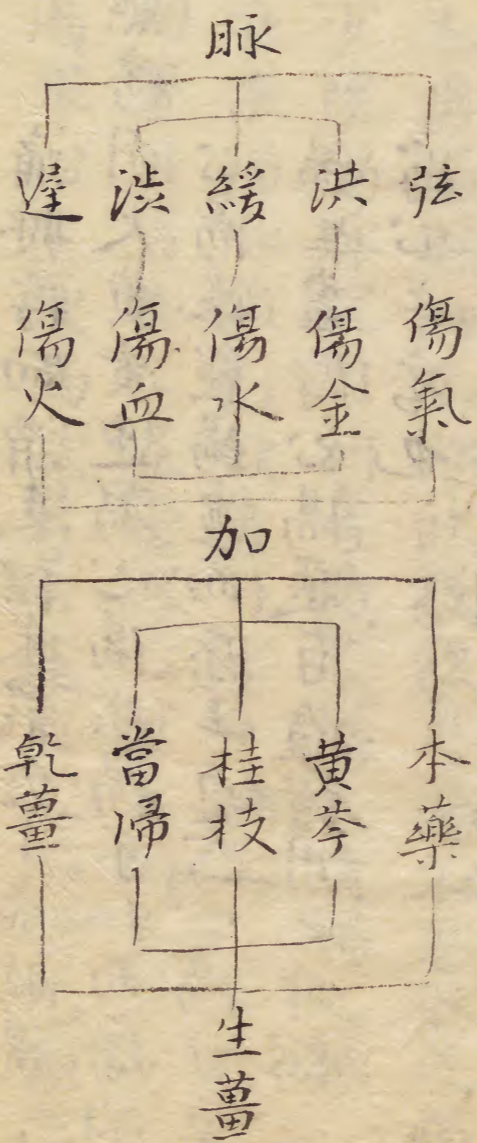 脉
弦
洪
緩
渋
遅
傷氣
傷金
傷水
傷血
傷火
加
本藥
黄芩
桂枝
當帰
乾薑
生薑